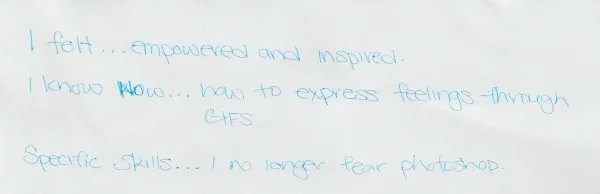 I felt... empowered and inspired.
I know Now... how to express feelings through
GIFS
Specific skills... I no longer fear photoshop.